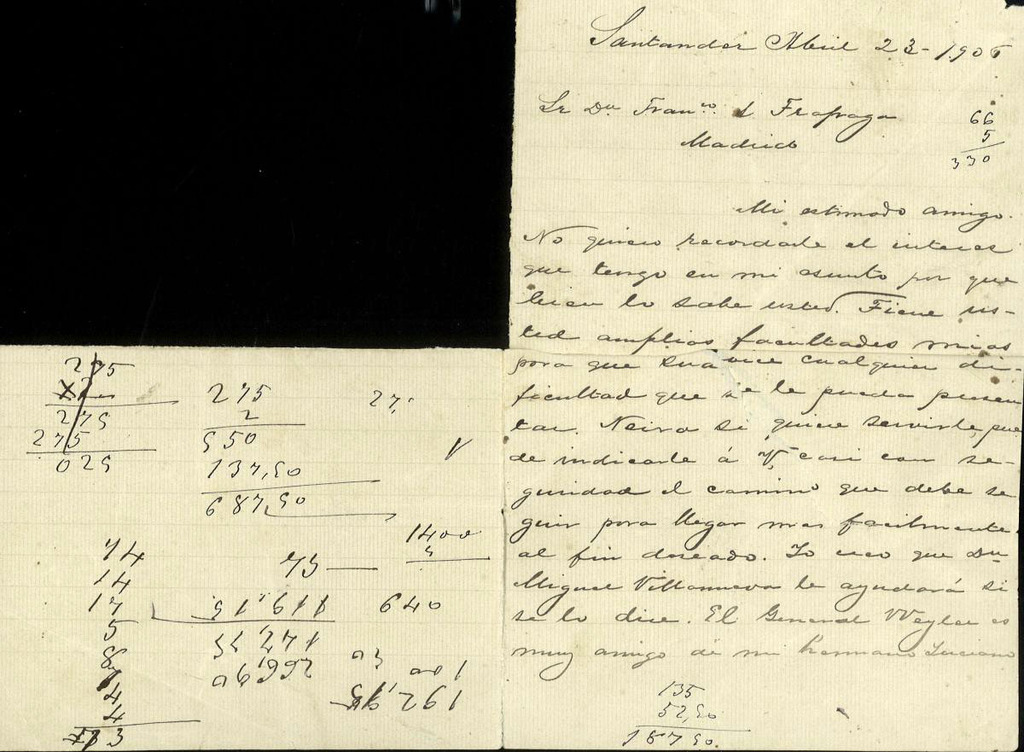 Santander Abril 23-1906
Sr Dn Franco. d Frapaga
Madrid
66
5
330
Mi estimado amigo.
No quiero recordarle el interes
que tengo en mi asunto por que
bien lo sabe usted. Tiene us-
ted amplias facultades mias
para que suavice cualquier di-
ficultad que se le pueda presen
tar. Neira si quiere servirle, pue
de indicarle á V, casi con se-
guridad el camino que debe se
guir para llegar mas facilmente
al fin deseado. Yo creo que Dn
Miguel Villanueva le ayudará si
se lo dice. El General Weyler es
muy amigo de mi hermano Luciano
135
52,50
187 50.
275
275
275
025
275
2
550
137,50
687,50
27,
V
1400
5
74
14
17
5
8
4
4
3
75
640